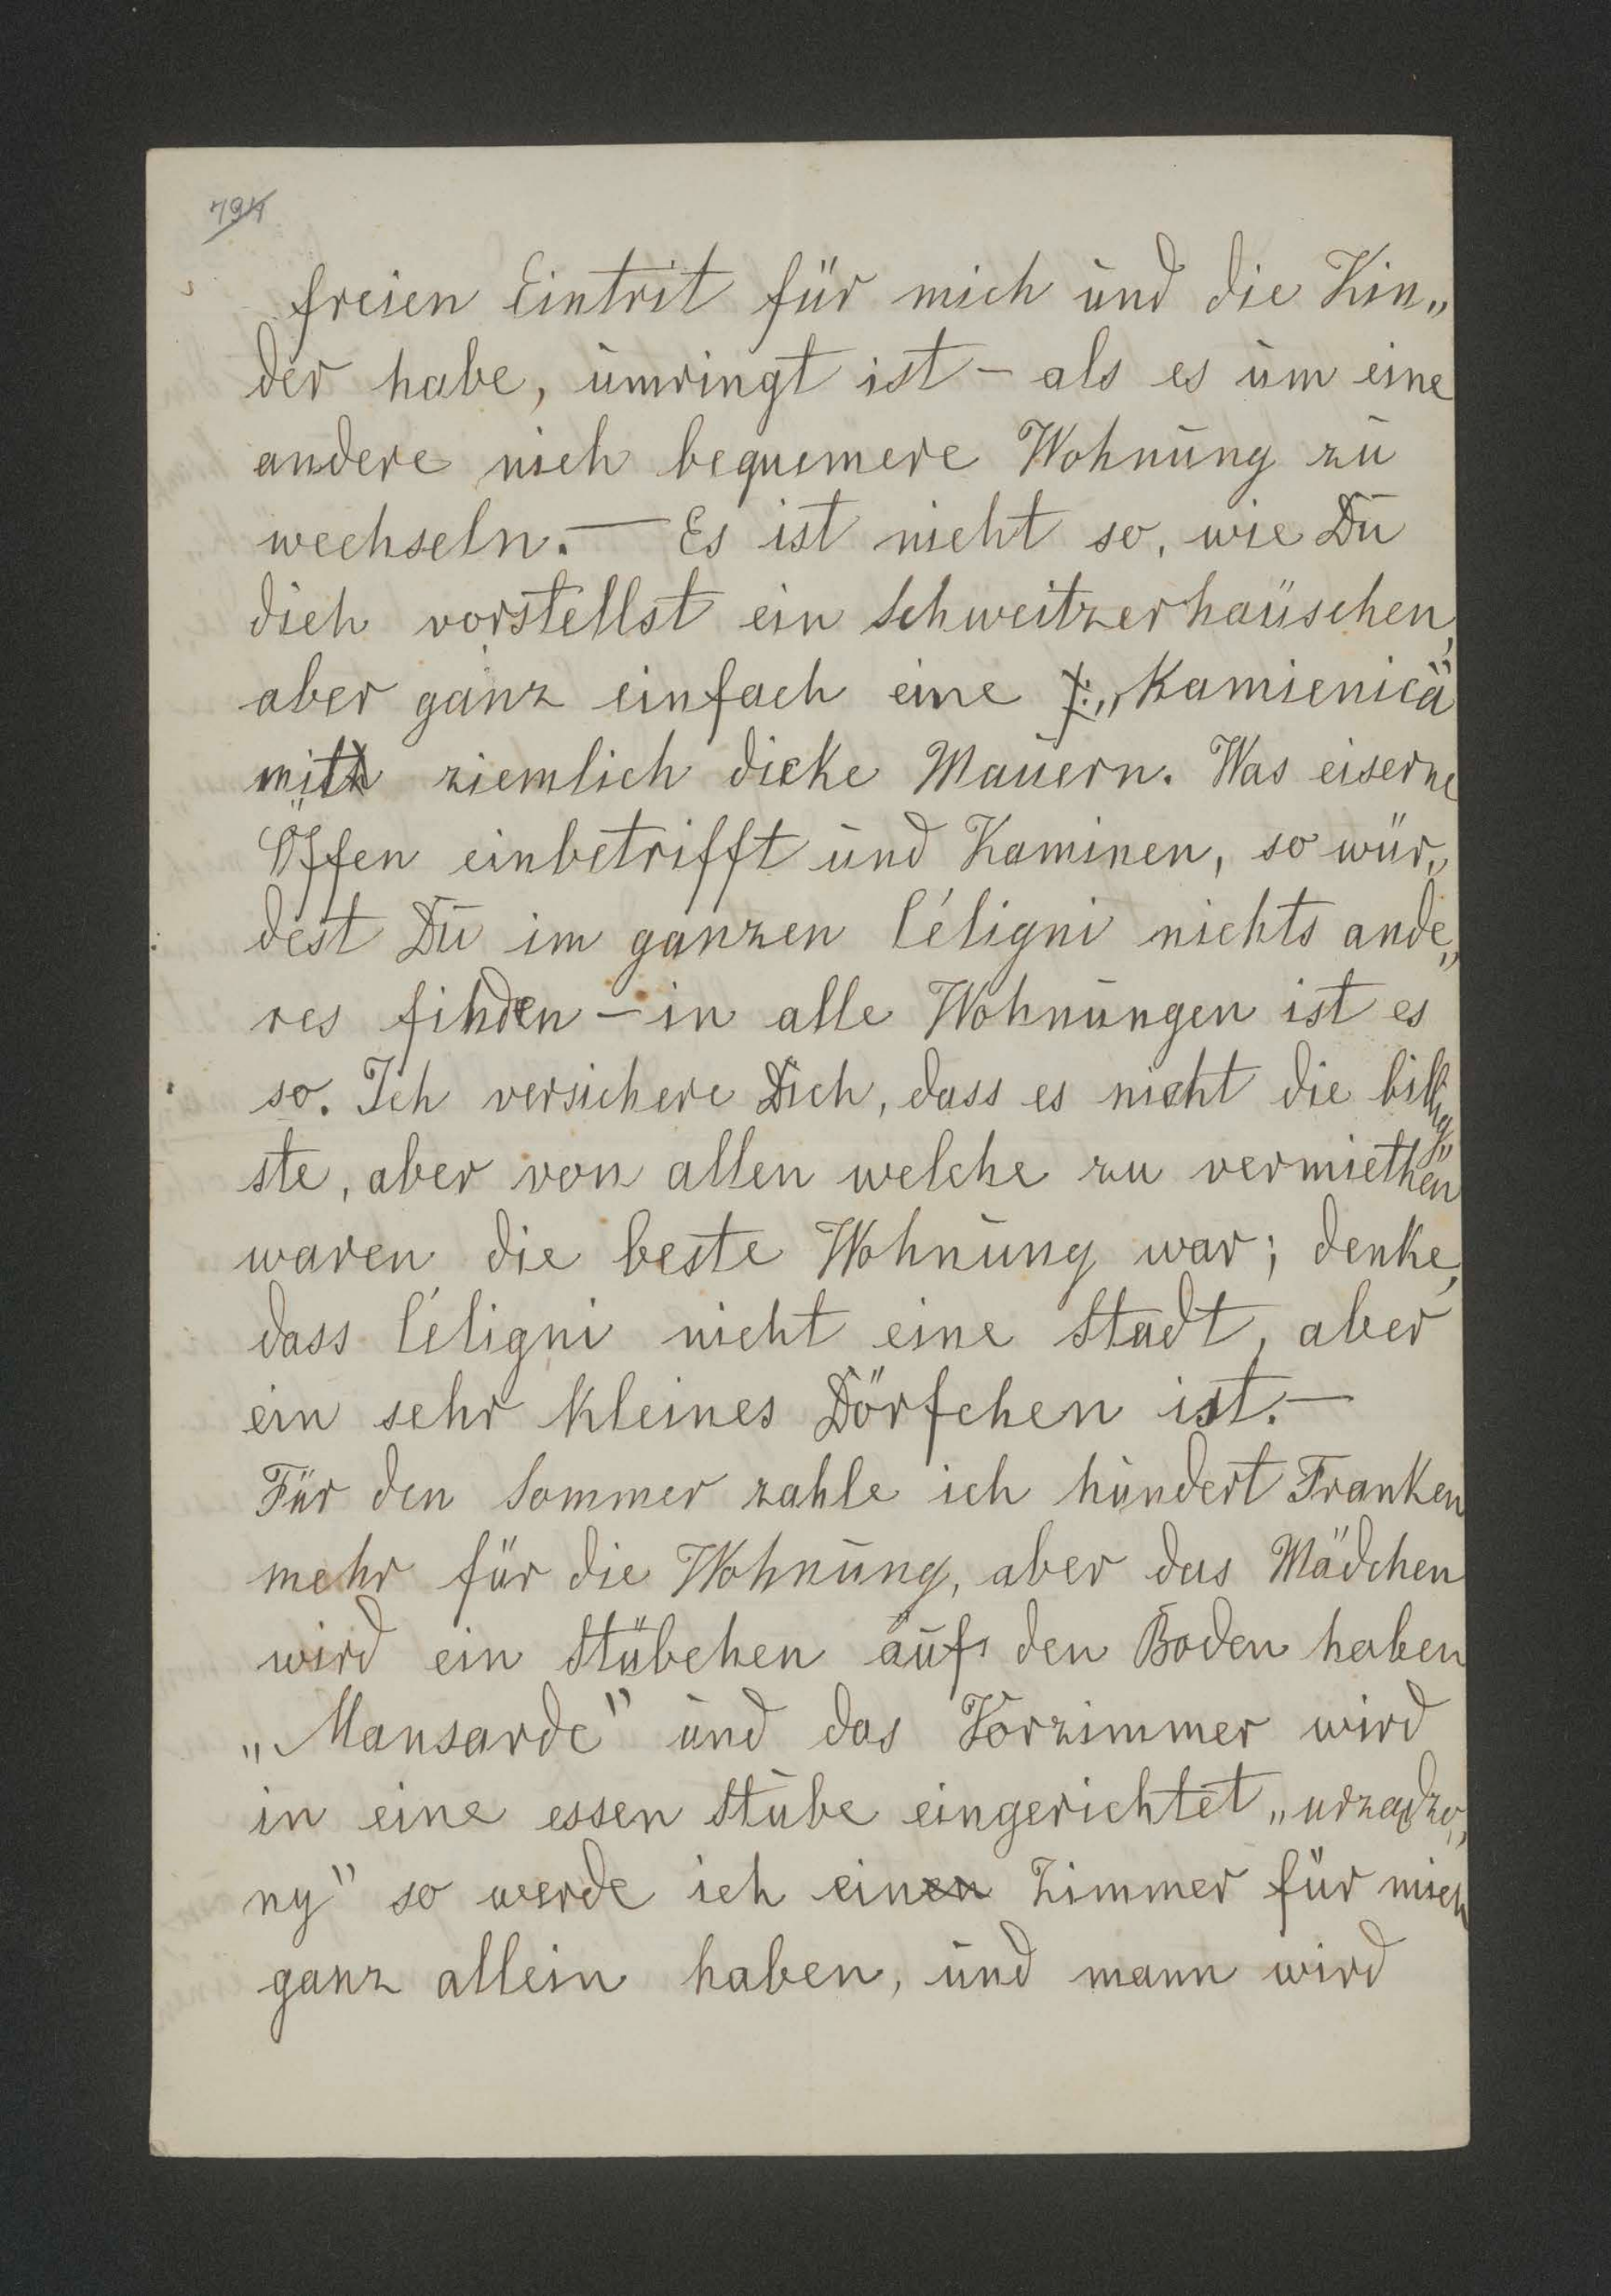 794
freien Eintrit für mich und die Kin„
der habe, umringt ist – als es um eine
andere nich bequemere Wohnung zu
wechseln. — Es ist nicht so, wie Du
dich vorstellst ein Schweitzerhaüschen,
aber ganz einfach eine „Kamienica"
mit ziemlich dicke Mauern. Was eiserne
Öffen einbetrifft und Kaminen, so wür„
dest Du im ganzen Céligni nichts ande„
res finden – in alle Wohnungen ist es
so. Ich versichere Dich, dass es nicht die billig„
ste, aber von allen welche zu vermiethen
waren die beste Wohnung war; denke,
dass Céligni nicht eine Stadt, aber
ein sehr kleines Dörfchen ist. —
Für den Sommer zahle ich hundert Franken
mehr für die Wohnung, aber das Mädchen
wird ein Stübchen auf den Boden haben
„Mansarde" und das Vorzimmer wird
in eine essen Stube eingerichtet „urządzo„
ny" so werde ich ein Zimmer für mich
ganz allein haben, und mann wird